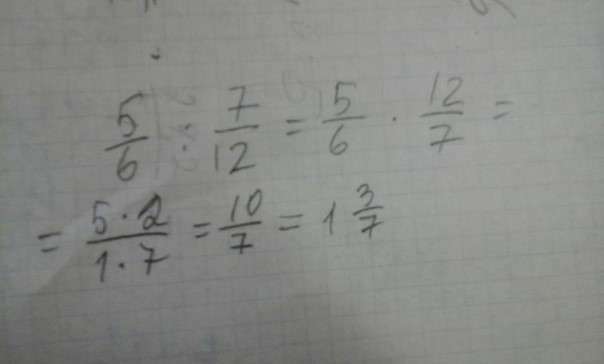 5/6 : 7/12 = 5/6 · 12/7 =
= 5·2/1·7 = 10/7 = 1 3/7